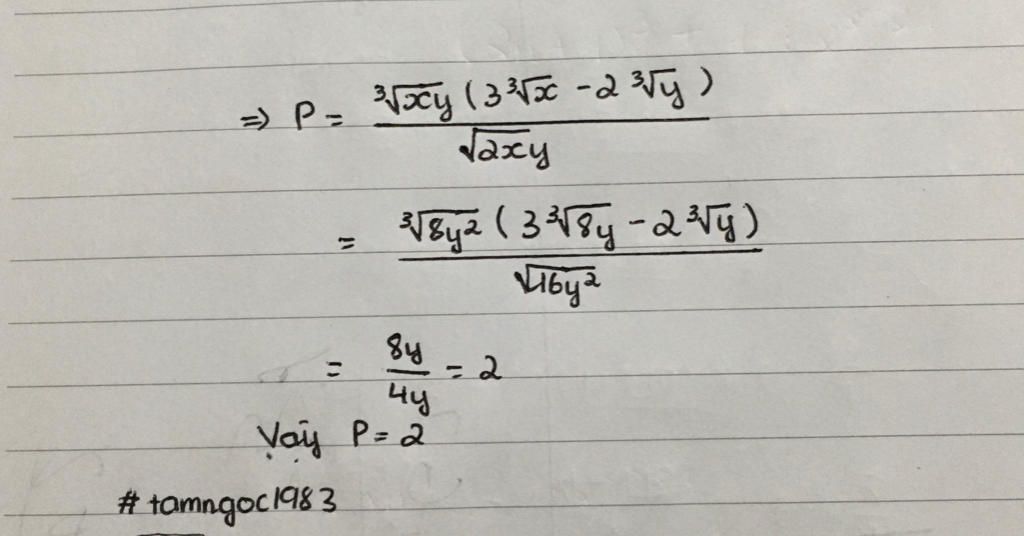 ⇒ P = ∛xy (3∛x - 2∛y) / √2xy
= ∛8y² (3∛8y - 2∛y) / √16y²
= 8y / 4y = 2
Vậy P = 2
#tamngoc1983